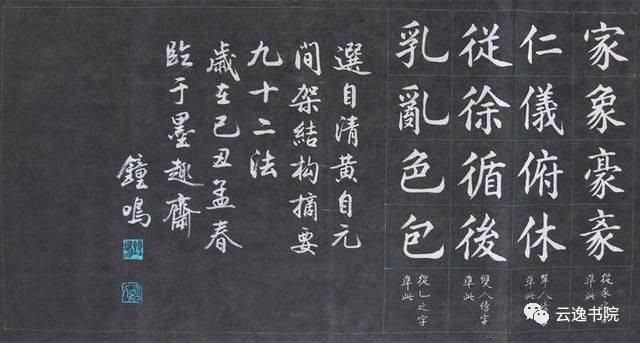 家象豪
從豕
準此
仁儀俯休
單人
準此
從徐循後
雙人傍字
準此
乳亂色包
從乚之字
準此
選自清黄自元
間架結构摘要
九十二法
歲在己丑孟春
臨于墨趣齋
鐘鳴
云逸书院